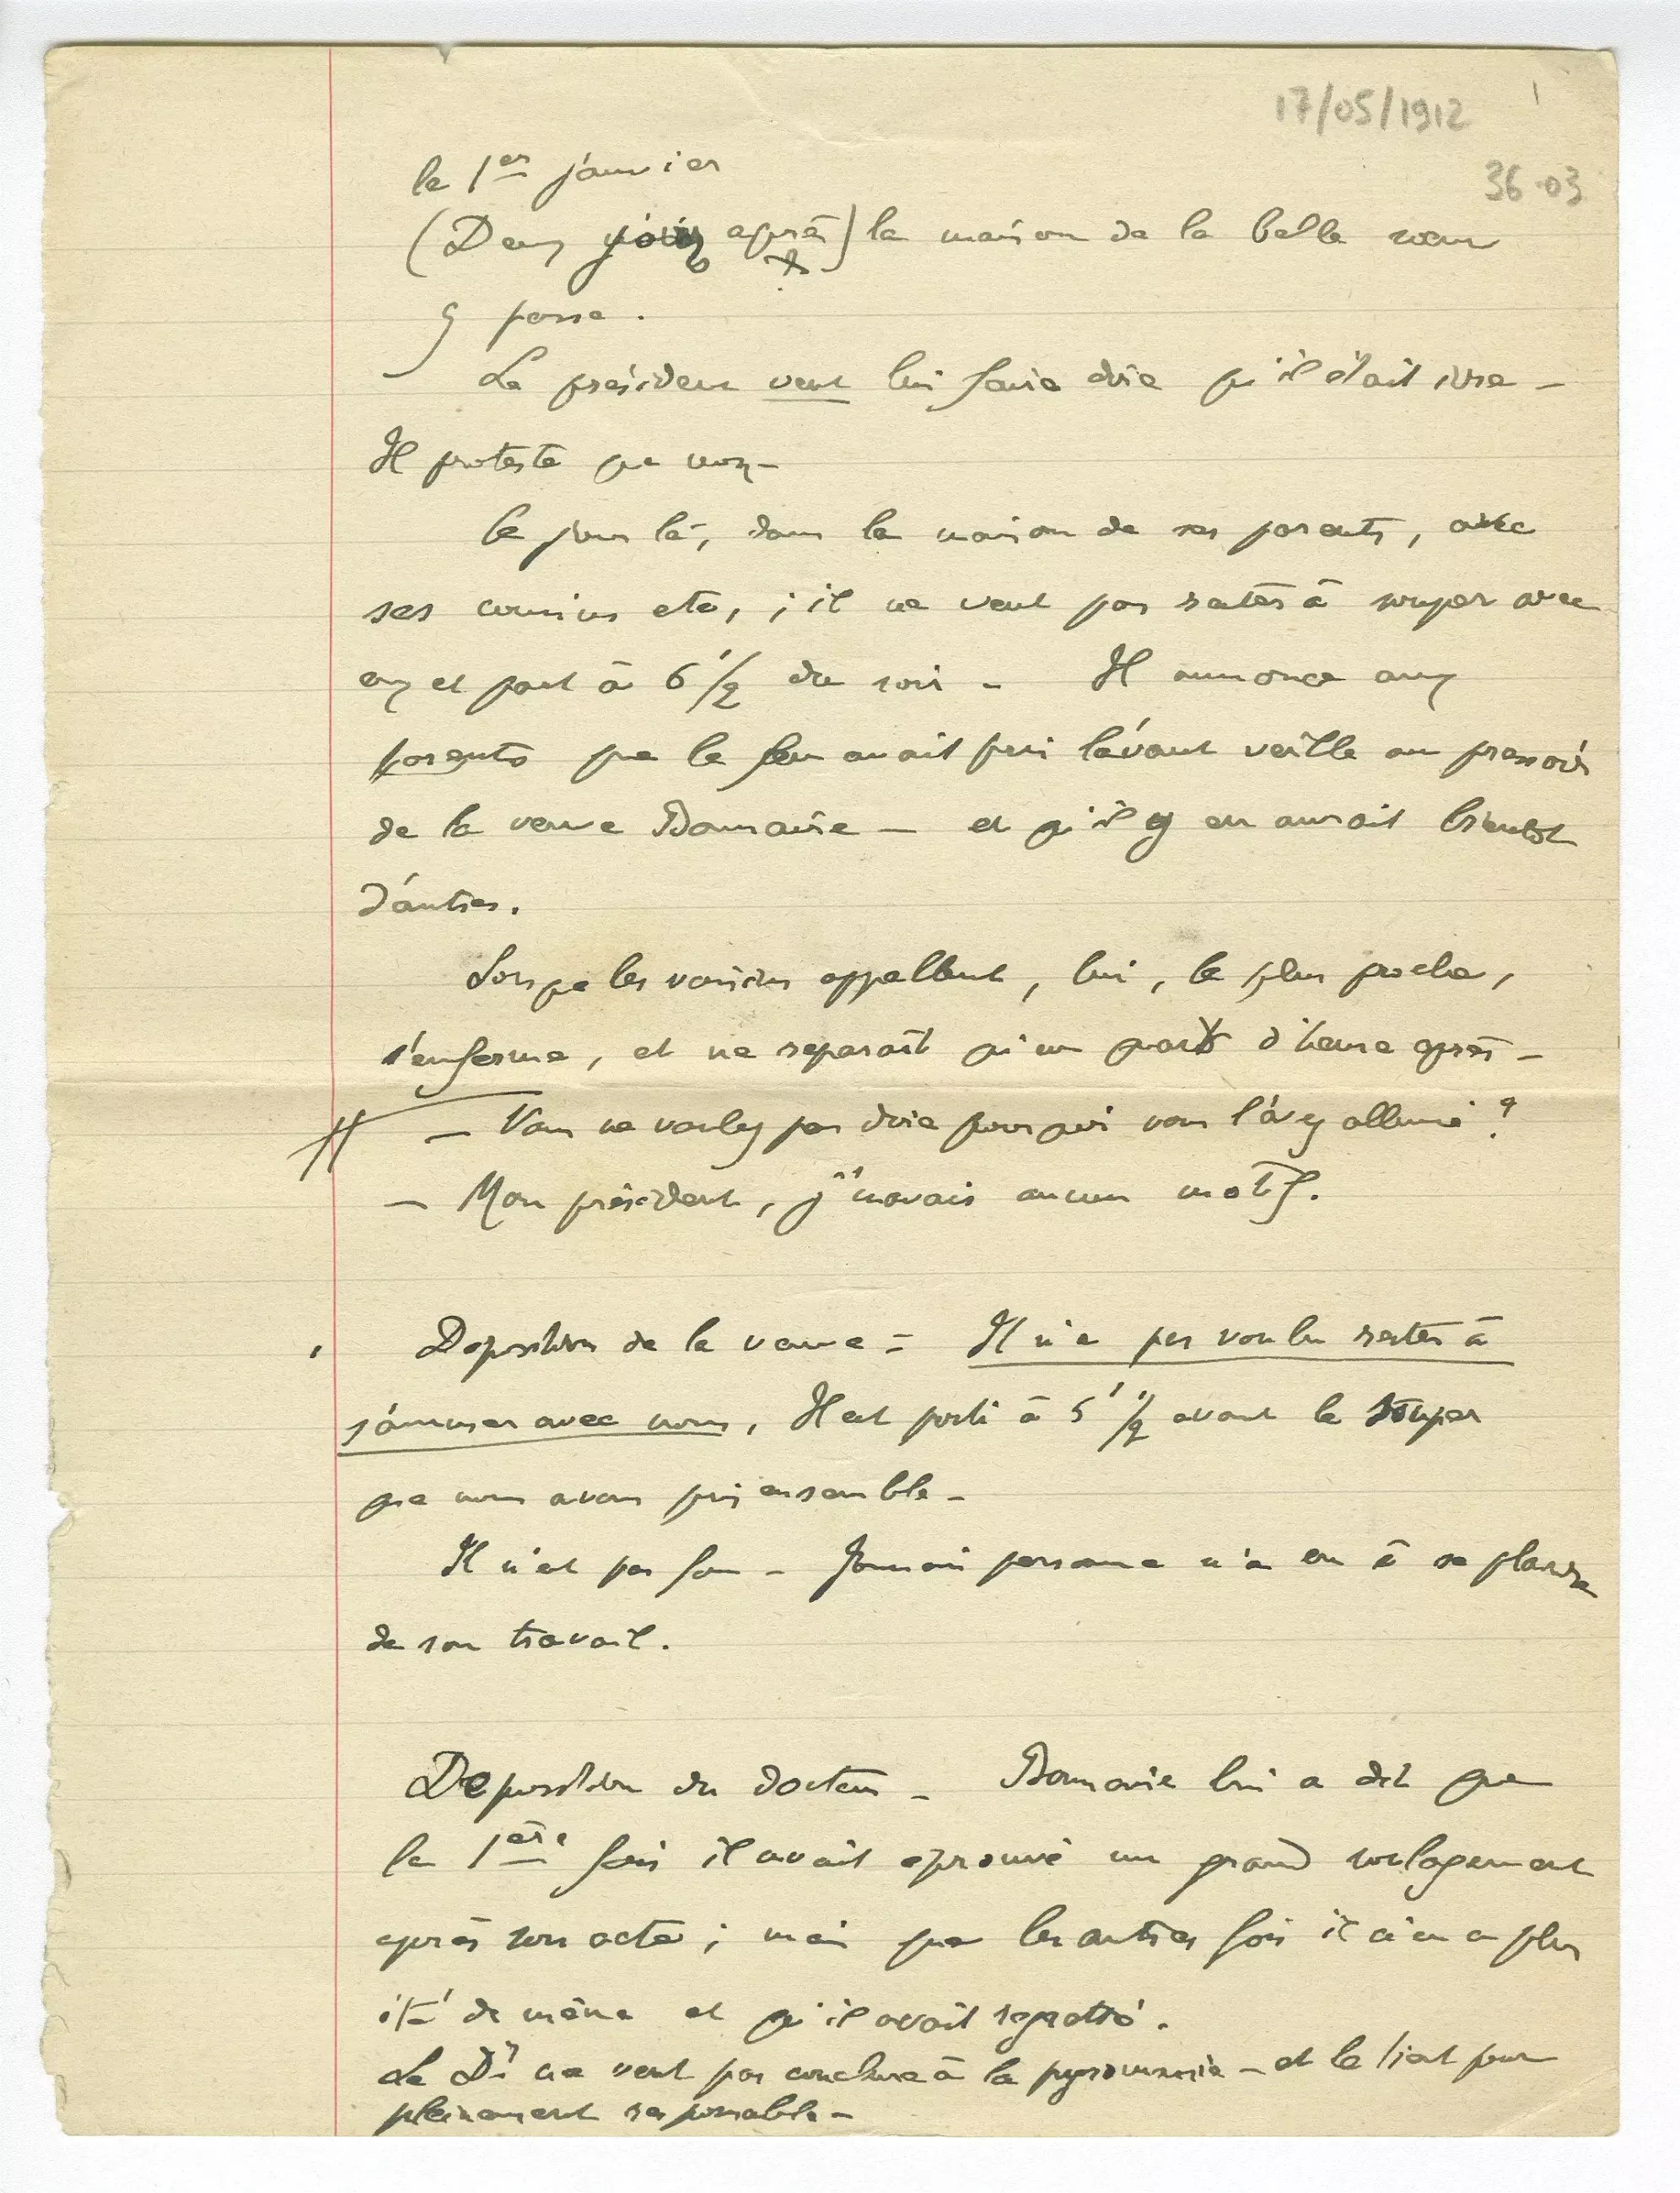 17/05/1912
36 03
le 1er janvier
(Deux jours après) la maison de la belle sœur
y passe.
Le président veut lui faire dire qu'il était ivre –
Il proteste que non –
Ce jour là, dans la maison de ses parents, avec
ses cousins etc, ; il ne veut pas rester à souper avec
eux et part à 6 1/2 du soir – Il annonce aux
parents que le feu avait pris l'avant veille au pressoir
de la veuve Bournaire – et qu'il y en aurait bientôt
d'autres.
Lorsque les voisins appellent, lui, le plus proche,
s'enferme, et ne reparaît qu'un quart d'heure après –
– Vous ne voulez pas dire pourquoi vous l'avez allumé ?
– Mon président, j'n'avais aucun motif.
Déposition de la veuve = Il n'a pas voulu rester à
s'amuser avec nous, Il est parti à 5 1/2 avant le souper
que nous avons pris ensemble –
Il n'est pas fou – Jamais personne n'a eu à se plaindre
de son travail.
Déposition du docteur – Bournaire lui a dit que
la 1ère fois il avait éprouvé un grand soulagement
après son acte ; mais que les autres fois il n'en a plus
été de même et qu'il avait regretté.
Le Dr ne veut pas conclure à la pyromanie – et le tient pour
pleinement responsable –